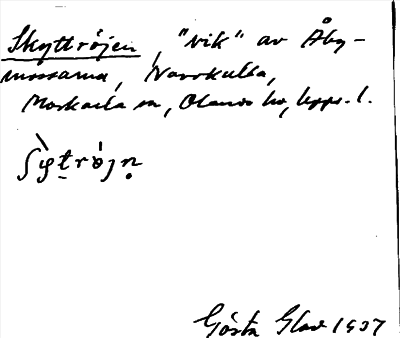 Skyttröjen, "vik" av Åby-
mossarna, Norrkulla,
Morkarla sn, Olands hd, Upps. l.
ʃỳt̠rö́jn̥
Gösta Glad 1937